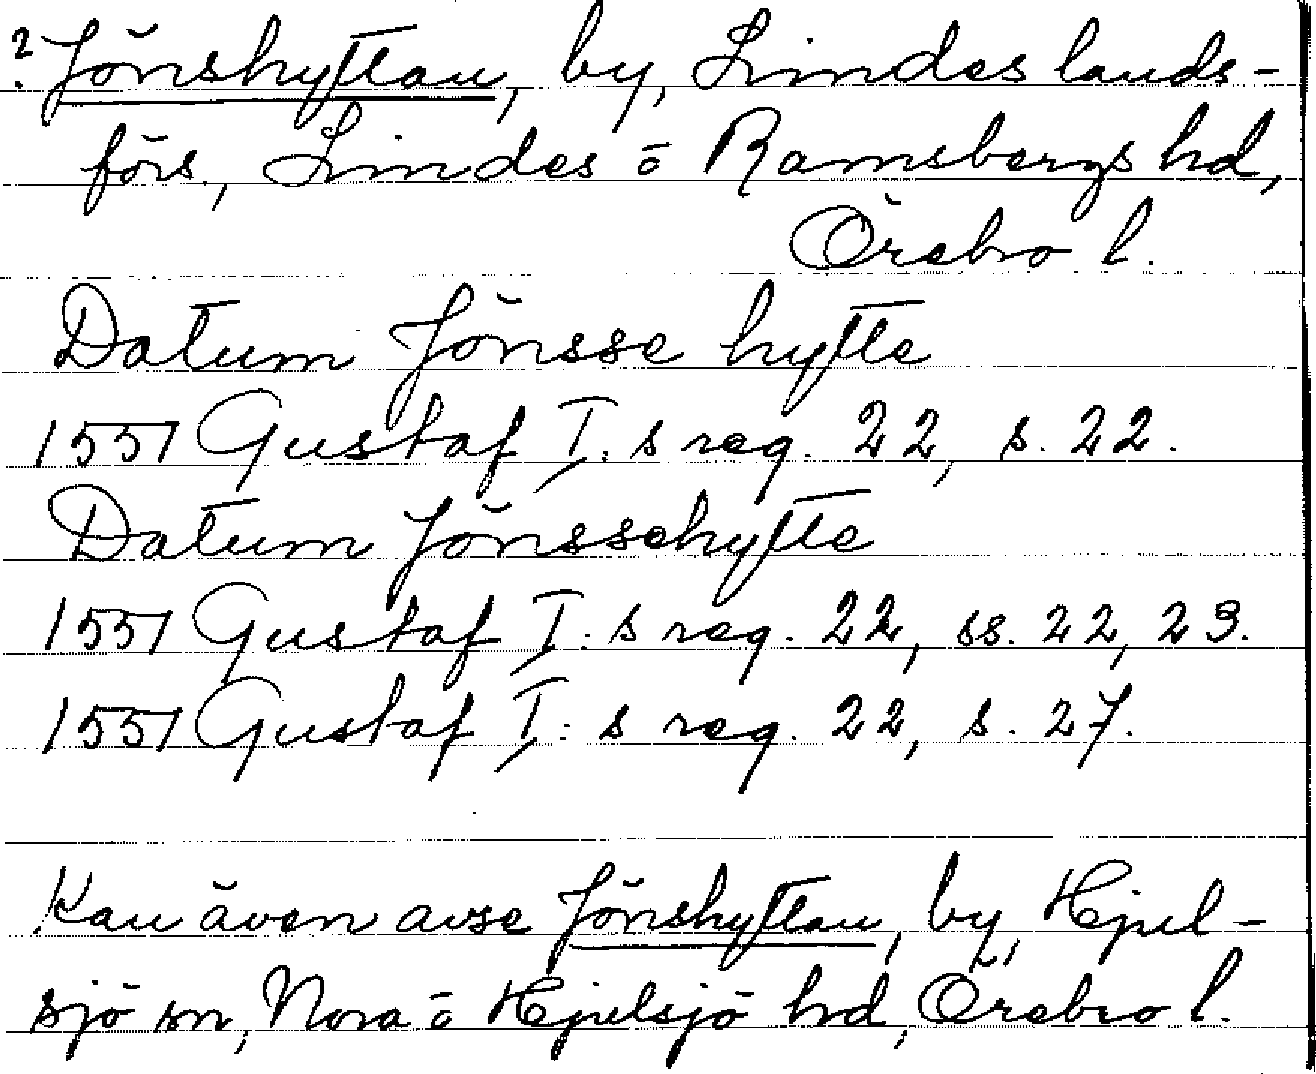 ? Jönshyttan, by, Lindes lands-
förs., Lindes o Ramsbergs hd,
Örebro l.
Datum Jönsse hytte
1551 Gustaf I:s reg. 22, s. 22.
Datum Jönssehytte
1551 Gustaf I:s reg. 22, ss. 22, 23.
1551 Gustaf I:s reg. 22, s. 27.
Kan även avse Jönshyttan, by, Hjul-
sjö sn, Nora o Hjulsjö hd, Örebro l.